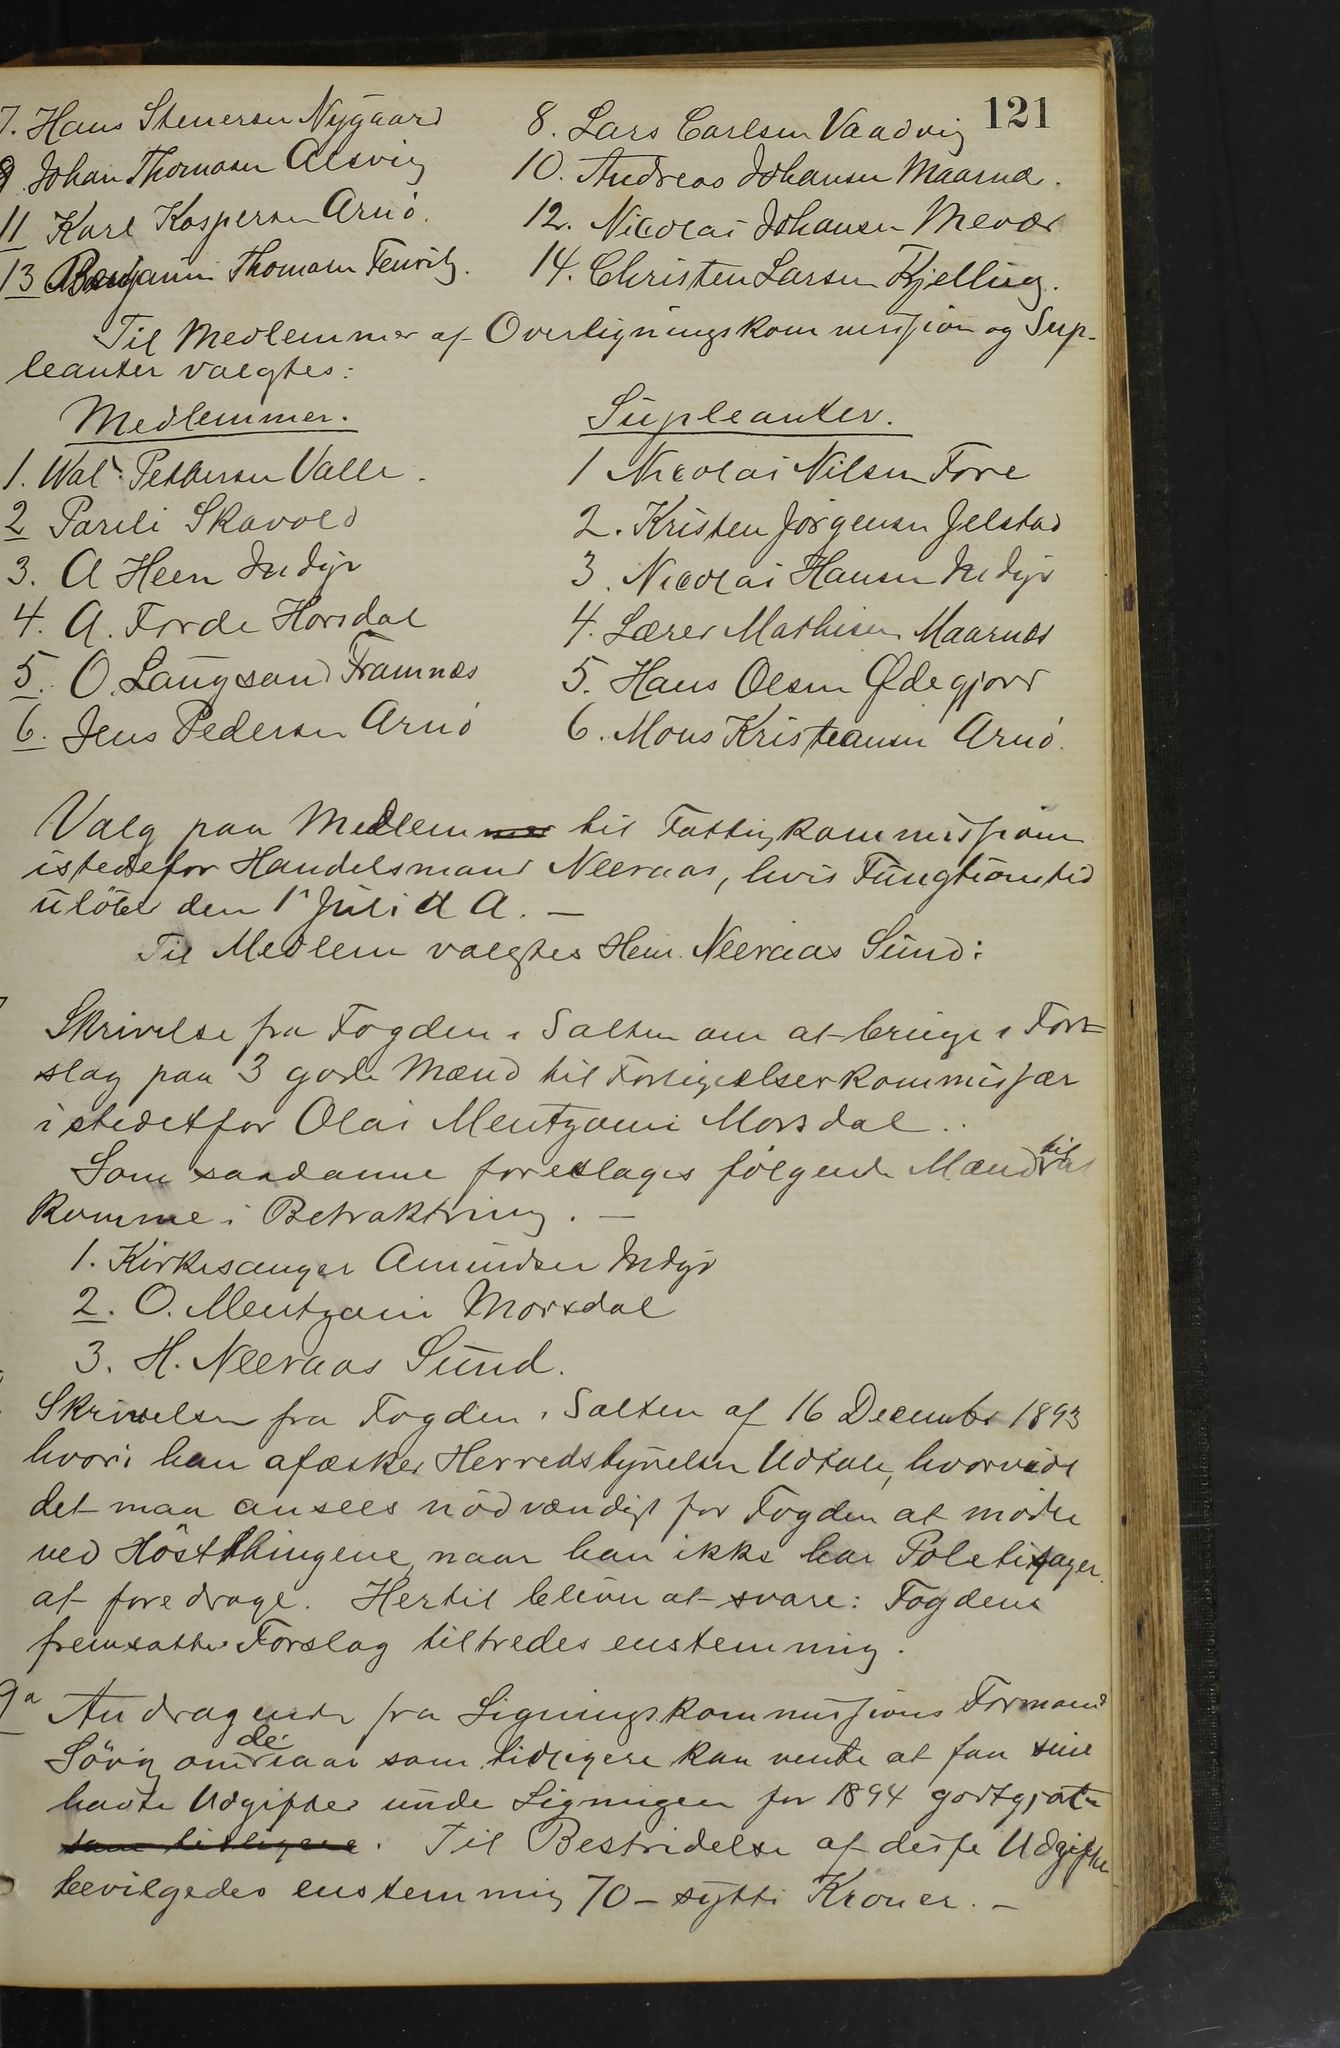 121
7. Hans Stenersen Nygaard 8. Lars Carlsen Vaadvig
9. Johan Thomasen Alsvig 10. Andreas Johansen Maarnæ.
11 Karl Kaspersen Arnö. 12. Nicolai Johansen Mevær
13 Benjamin Thomasen Fenvik. 14. Christen Larsen Kjelling.
Til Medlemmer af Overligningskommission og Sup-
leanter valgtes:
Medlemmer. Supleanter.
1. Wal. Pettersen Valle. 1 Nicolai Nilsen Fore
2 Pareli Skavold 2. Kristen Jörgensen Jelstad
3. A Heen Indyr 3. Nicolai Hansen Indyr
4. A. Forde Horsdal 4. Lærer Mathisen Maarnæs
5. O. Langsand Framnæs 5. Hans Olsen Ødegjord
6. Jens Pedersen Arnö 6. Mons Kristeansen Arnö.
Valg paa Medlemmer til Fattigkommission
istedefor Handelsmand Neeraas, hvis Fungtionstid
ulöber den 1 Juli d A. —
Til Medlem valgtes Hem. Neeraas Sund:
Skrivelse fra Fogden i Salten om at bringe i For-
slag paa 3 gode Mænd til Forligelseskommissær
istedetfor Olai Mentzoni Morsdal..
Som saadanne foreslages fölgende Mænd til at
komme i Betraktning. —
1. Kirkesanger Amundsen Indyr
2. O. Mentzoni Morsdal
3. H. Neeraas Sund.
Skrivelsen fra Fogden i Salten af 16 Decembr 1893
hvori han afæsker Herredstyrelsen Udtale, hvorvidt
det maa ansees nödvændigt for Fogden at möde
ved Höstthingene, naar han ikke har Poletisager
at foredrage. Hertil bliver at svare: Fogdens
fremsatte Forslag tiltredes enstemmig.
9a Andragende fra Ligningskommissions Formand
Sövig om de iaar som tidligere kan vente at faa sine
havte Udgifter unde Ligningen for 1894 godtgjort
som tidligere. Til Bestridelse af disse Udgifter
bevilgedes enstemmig 70 – sytti Kroner. —